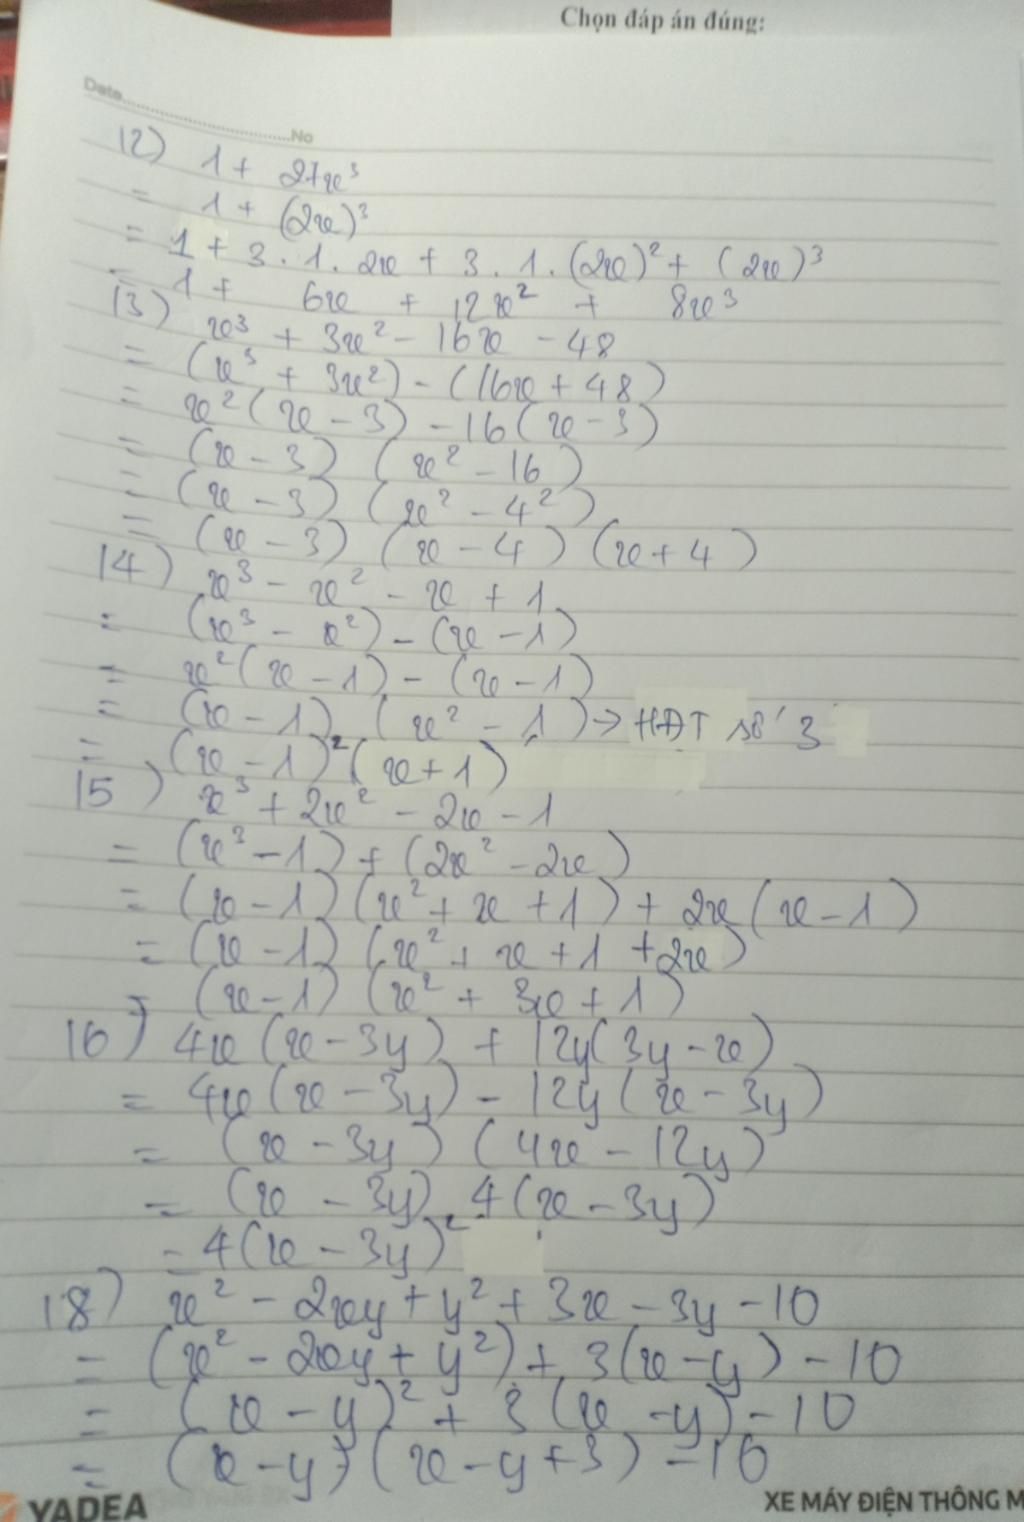 Chọn đáp án đúng:
Date.........................No
12) 1 + 27x³
= 1 + (2x)³
= 1 + 3 . 1 . 2x + 3 . 1 . (2x)² + (2x)³
= 1 + 6x + 12x² + 8x³
13) x³ + 3x² - 16x - 48
= (x³ + 3x²) - (16x + 48)
= x²(x - 3) - 16(x - 3)
= (x - 3) (x² - 16)
= (x - 3) (x² - 4²)
= (x - 3) (x - 4) (x + 4)
14) x³ - x² - x + 1
= (x³ - x²) - (x - 1)
= x²(x - 1) - (x - 1)
= (x - 1) (x² - 1) → HĐT số 3
= (x - 1)² (x + 1)
15) x³ + 2x² - 2x - 1
= (x³ - 1) + (2x² - 2x)
= (x - 1) (x² + x + 1) + 2x (x - 1)
= (x - 1) (x² + x + 1 + 2x)
= (x - 1) (x² + 3x + 1)
16) 4x (x - 3y) + 12y (3y - x)
= 4x (x - 3y) - 12y (x - 3y)
= (x - 3y) (4x - 12y)
= (x - 3y) . 4 (x - 3y)
= 4 (x - 3y)²
18) x² - 2xy + y² + 3x - 3y - 10
= (x² - 2xy + y²) + 3(x - y) - 10
= (x - y)² + 3 (x - y) - 10
= (x - y) (x - y + 3) - 10
YADEA
XE MÁY ĐIỆN THÔNG M